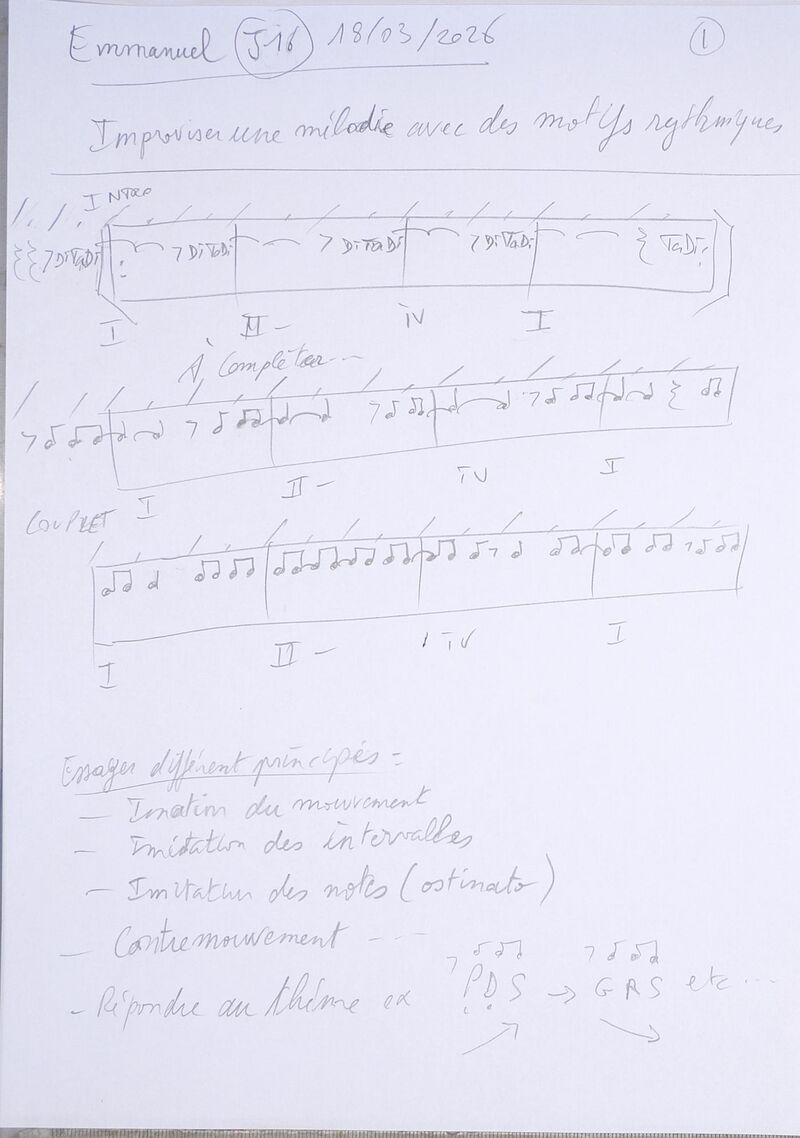 Emmanuel J16 18/03/2026 1
Improviser une mélodie avec des motifs rythmiques
INTRO
DiTaDi DiTaDi DiTaDi DiTaDi TaDi
I II- IV I
A Compléter...
I II- IV I
COUPLET
I II- IV I
Essayer différent principes =
— Imation du mouvement
— Imitation des intervalles
— Imitation des notes (ostinato)
— Contremouvement ----
- Répondre au thème ex PDS → GRS etc...